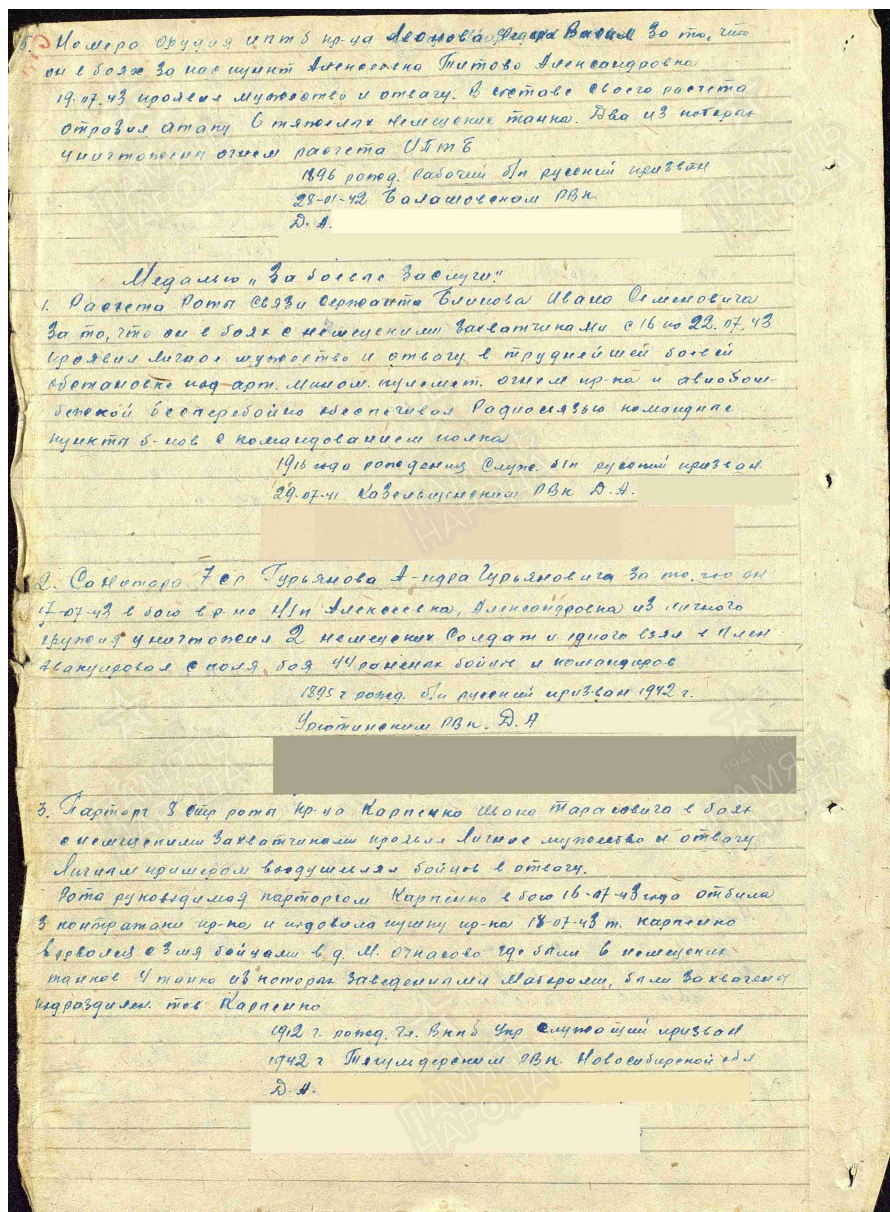 5. Номера орудия ИПТБ кр-ца Леонова За то, что
он в боях за нас пункт Алексеевка Титово Александровка
19.07.43 проявил мужество и отвагу. В составе своего расчета
отразил атаку 6 тяжелых немецких танка. Два из которых
уничтожены огнем расчета ИПТБ
1896 рожд. Рабочий б/п русский призван
28-01-42 Балашовским РВк.
Д. А.
Медалью „За боевые заслуги"
1. Расчета Роты связи сержанта Блинова Ивана Семеновича
За то, что он в боях с немецкими захватчиками с 16 по 22.07.43
проявил личное мужество и отвагу в труднейшей боевой
обстановке под арт. мином. пулемет. огнем пр-ка и авиобом-
бежкой бесперебойно обеспечивал Радиосвязью командные
пункты б-нов с командованием полка
1916 года рождения Служ. б/п русский призван
29.07.41 РВк Д.А.
2. Санитара 7 ср Гурьянова А-ндра Гурьяновича За то, что он
17-07-43 в бою в р-не Н/п Алексеевка, Александровка из личного
оружия уничтожил 2 немецких Солдат и одного взял в плен
эвакуировал с поля боя 44 раненых бойцов и командиров
1895 г рожд. б/п русский призван 1942 г.
РВк. Д.А
3. Парторг 8 стр роты кр-ца Карпенко Ивана Тарасовича в боях
с немецкими захватчиками проявил личное мужество и отвагу
Личным примером воодушевлял бойцов в отвагу.
Рота руководимая парторгом Карпенко в бою 16-07-43 года отбила
3 контратаки пр-ка и подавила пушку пр-ка 18-07-43 т. Карпенко
ворвался с 3 мя бойцами в д. М. Очкасово где были 6 немецких
танков 4 танка из которых заведенными Маторами, были захвачены
подразделен. тов Карпенко
1912 г. рожд. Чл. Вкпб Укр служащий призван
1942 г РВк Новосибирской обл
Д. А.
ПАМЯТЬ
НАРОДА